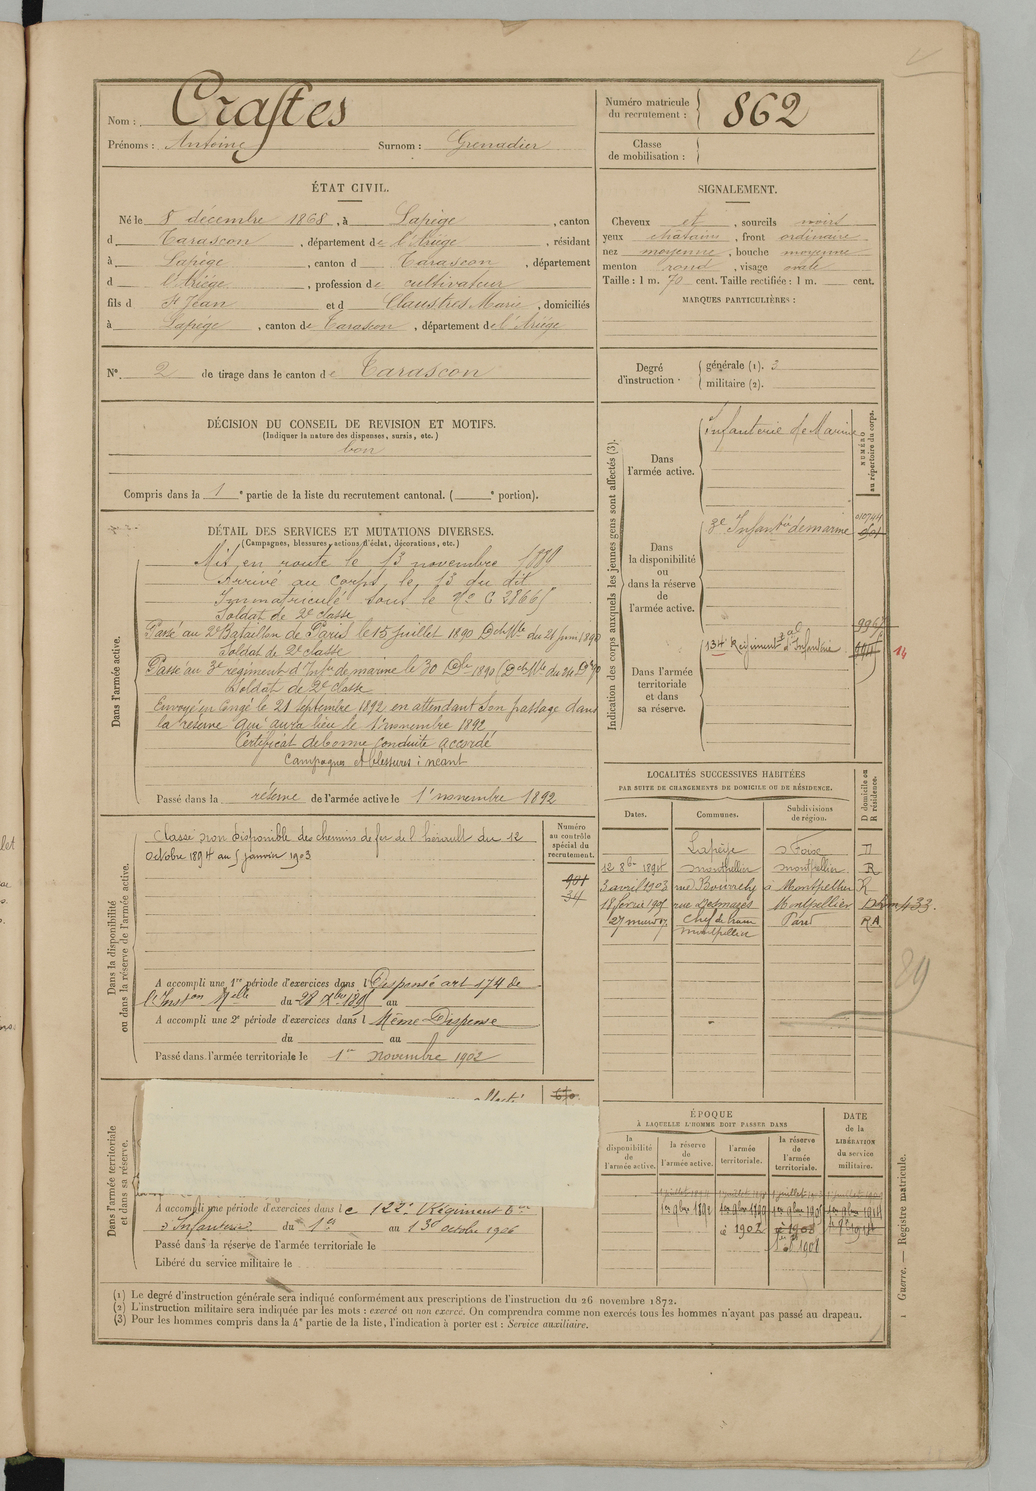 Nom : Crastes
Prénoms : Antoine Surnom : Grenadier
Numéro matricule du recrutement : 862
Classe de mobilisation :
ÉTAT CIVIL.
Né le 8 décembre 1868, à Lapège, canton
d Tarascon, département de l'Ariège, résidant
à Lapège, canton d Tarascon, département
d l'Ariège, profession de cultivateur
fils d Jean et d Claustres Marie, domiciliés
à Lapège, canton de Tarascon, département de l'Ariège
N° 2 de tirage dans le canton de Tarascon
SIGNALEMENT.
Cheveux et, sourcils noirs
yeux chatains, front ordinaire
nez moyenne, bouche moyenne
menton rond, visage ovale
Taille : 1 m. 70 cent. Taille rectifiée : 1 m. cent.
MARQUES PARTICULIÈRES :
Degré d'instruction. générale (1). 3
militaire (2).
DÉCISION DU CONSEIL DE REVISION ET MOTIFS.
(Indiquer la nature des dispenses, sursis, etc.)
bon
Compris dans la 1e partie de la liste du recrutement cantonal. ( e portion).
DÉTAIL DES SERVICES ET MUTATIONS DIVERSES.
(Campagnes, blessures, actions d'éclat, décorations, etc.)
Dans l'armée active.
Mis en route le 13 novembre 1889
Arrivé au corps le 13 du dit
Immatriculé sous le No C 2866
Soldat de 2e classe
Passé au 2e Bataillon de Paris le 15 juillet 1890 Dch Mlle du 21 juin 1890
Soldat de 2e classe
Passé au 3e régiment d'Infie de marine le 30 Dbre 1890 (Dch Mlle du
Soldat de 2e classe
Envoyé en congé le 21 septembre 1892 en attendant son passage dans
la réserve qui aura lieu le 1er novembre 1892
Certificat de bonne conduite accordé
Campagnes et blessures : néant
Passé dans la réserve de l'armée active le 1er novembre 1892
Indication des corps auxquels les jeunes gens sont affectés (3).
NUMÉRO au répertoire du corps.
Dans l'armée active.
Infanterie de Marine
Dans la disponibilité ou dans la réserve de l'armée active.
3e Infantie de marine
Dans l'armée territoriale et dans sa réserve.
134e Régiment tal d'Infanterie
14
LOCALITÉS SUCCESSIVES HABITÉES
PAR SUITE DE CHANGEMENTS DE DOMICILE OU DE RÉSIDENCE.
D domicile ou R résidence.
Dates. Communes. Subdivisions de région.
Lapège Foix D
12 8bre 1894 Montpellier Montpellier R
3 avril 1903 rue Bourrely à Montpellier R
18 février 1905 rue Desmazes Montpellier D
Chef de train Montpellier Paris RA
89
Dans la disponibilité ou dans la réserve de l'armée active.
Numéro au contrôle spécial du recrutement.
901
34
Classé non disponible des chemins de fer de l'hérault du 12
octobre 1894 au 5 janvier 1903
A accompli une 1re période d'exercices dans l Dispensé art 174 de
l'Inston Mlle du 28 Xbre 1895 au
A accompli une 2e période d'exercices dans l Même Dispense
du au
Passé dans l'armée territoriale le 1er novembre 1902
Dans l'armée territoriale et dans sa réserve.
A accompli une période d'exercices dans le 122e Régiment
d'Infanterie du 1er au 13 octobre 1906
Passé dans la réserve de l'armée territoriale le
Libéré du service militaire le
ÉPOQUE
À LAQUELLE L'HOMME DOIT PASSER DANS
la disponibilité de l'armée active.
la réserve de l'armée active.
l'armée territoriale.
la réserve de l'armée territoriale.
DATE de la LIBÉRATION du service militaire.
1er 9bre 1892
Guerre. — Registre matricule.
(1) Le degré d'instruction générale sera indiqué conformément aux prescriptions de l'instruction du 26 novembre 1872.
(2) L'instruction militaire sera indiquée par les mots : exercé ou non exercé. On comprendra comme non exercés tous les hommes n'ayant pas passé au drapeau.
(3) Pour les hommes compris dans la 4e partie de la liste, l'indication à porter est : Service auxiliaire.